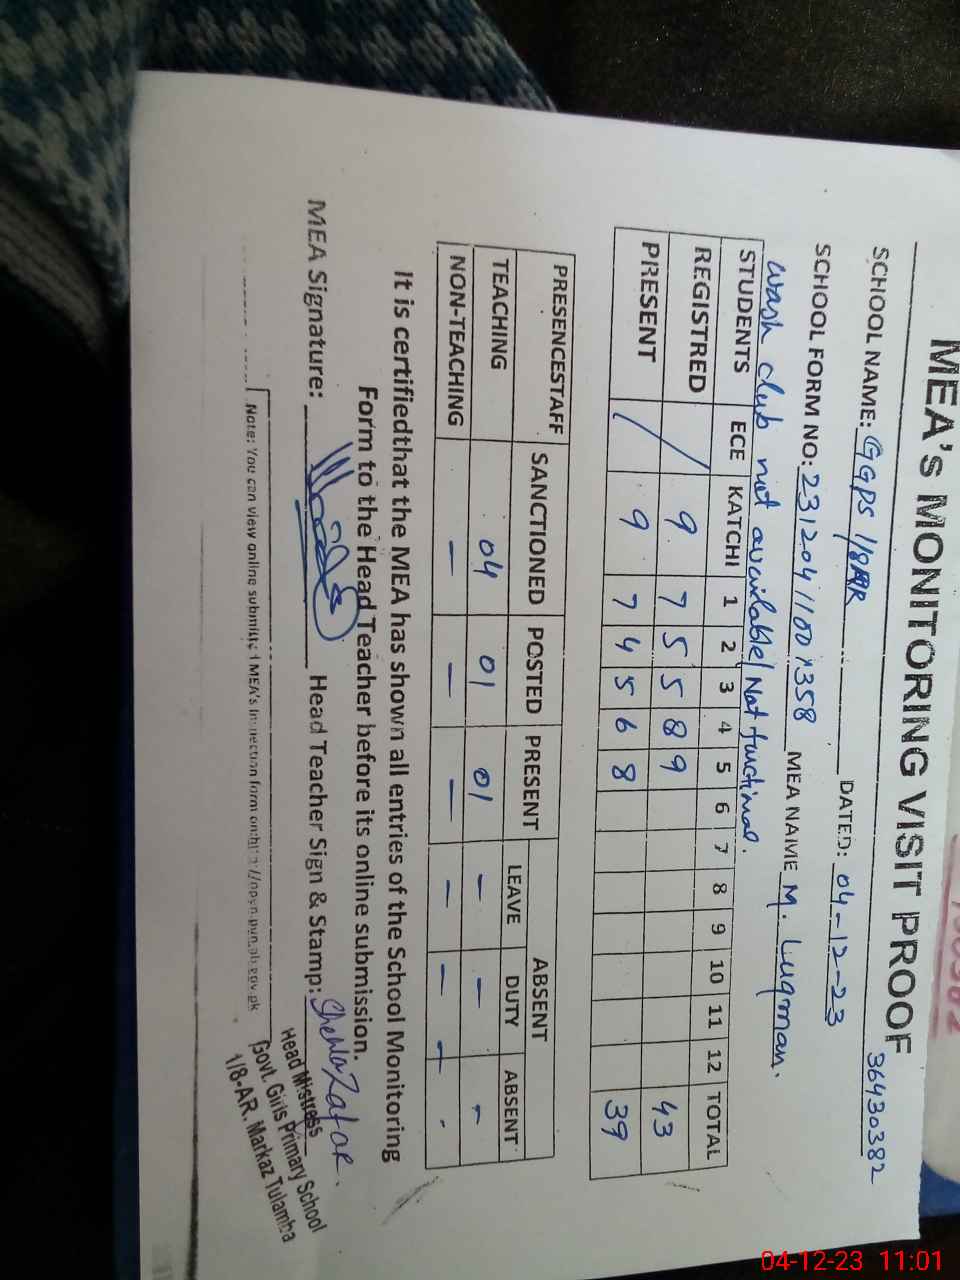 MEA's MONITORING VISIT PROOF
36430382
SCHOOL NAME: GGPS 1/8AR DATED: 04-12-23
SCHOOL FORM NO: 23120411001358 MEA NAME M. Luqman.
wash club not available/Not functional.
STUDENTS ECE KATCHI 1 2 3 4 5 6 7 8 9 10 11 12 TOTAL
REGISTRED / 9 7 5 5 8 9 43
PRESENT / 9 7 4 5 6 8 39
PRESENCESTAFF SANCTIONED POSTED PRESENT ABSENT
LEAVE DUTY ABSENT
TEACHING 04 01 01 - - -
NON-TEACHING - - - - - - -
It is certifiedthat the MEA has shown all entries of the School Monitoring
Form to the Head Teacher before its online submission.
MEA Signature: Head Teacher Sign & Stamp: Shehla Zafar.
Head Mistress
Govt. Girls Primary School
1/8-AR. Markaz Tulamba
Note: You can view online submitted MEA's Inspection form on:
04-12-23 11:01